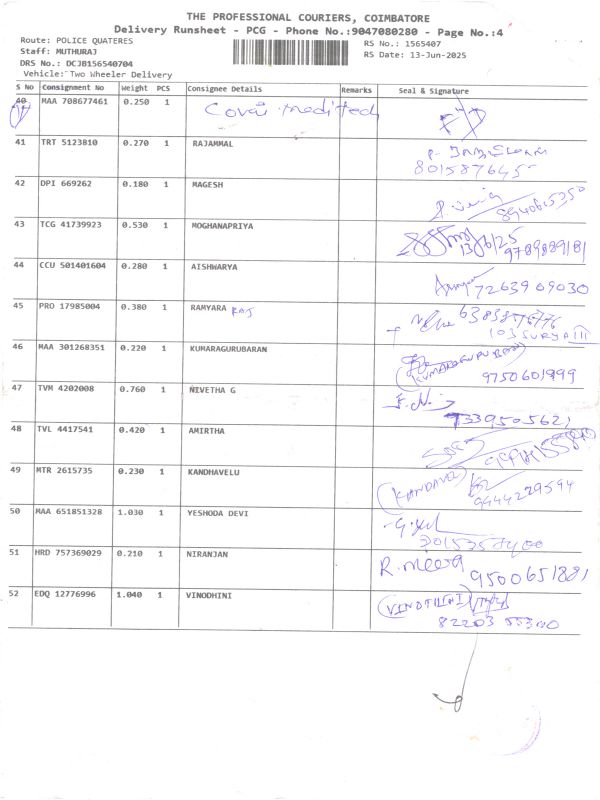 THE PROFESSIONAL COURIERS, COIMBATORE
Delivery Runsheet - PCG - Phone No.:9047080280 - Page No.:4
Route: POLICE QUATERES
RS No.: 1565407
Staff: MUTHURAJ
RS Date: 13-Jun-2025
DRS No.: DCJB156540704
Vehicle: Two Wheeler Delivery
S No Consignment No Weight PCS Consignee Details Remarks Seal & Signature
40 MAA 708677461 0.250 1
41 TRT 5123810 0.270 1 RAJAMMAL
42 DPI 669262 0.180 1 MAGESH
43 TCG 41739923 0.530 1 MOGHANAPRIYA
13/6/25
9789889181
44 CCU 501401604 0.280 1 AISHWARYA
7263909030
45 PRO 17985004 0.380 1 RAMYARA RAJ
103 SURYA III
46 MAA 301268351 0.220 1 KUMARAGURUBARAN
KUMARAGURUBARAN
9750601999
47 TVM 4202008 0.760 1 NIVETHA G
9339505621
48 TVL 4417541 0.420 1 AMIRTHA
49 MTR 2615735 0.230 1 KANDHAVELU
KANDAVEL
9444229594
50 MAA 651851328 1.030 1 YESHODA DEVI
51 HRD 757369029 0.210 1 NIRANJAN R.meera
9500651881
52 EDQ 12776996 1.040 1 VINODHINI
VINOTHINI
82203 55300